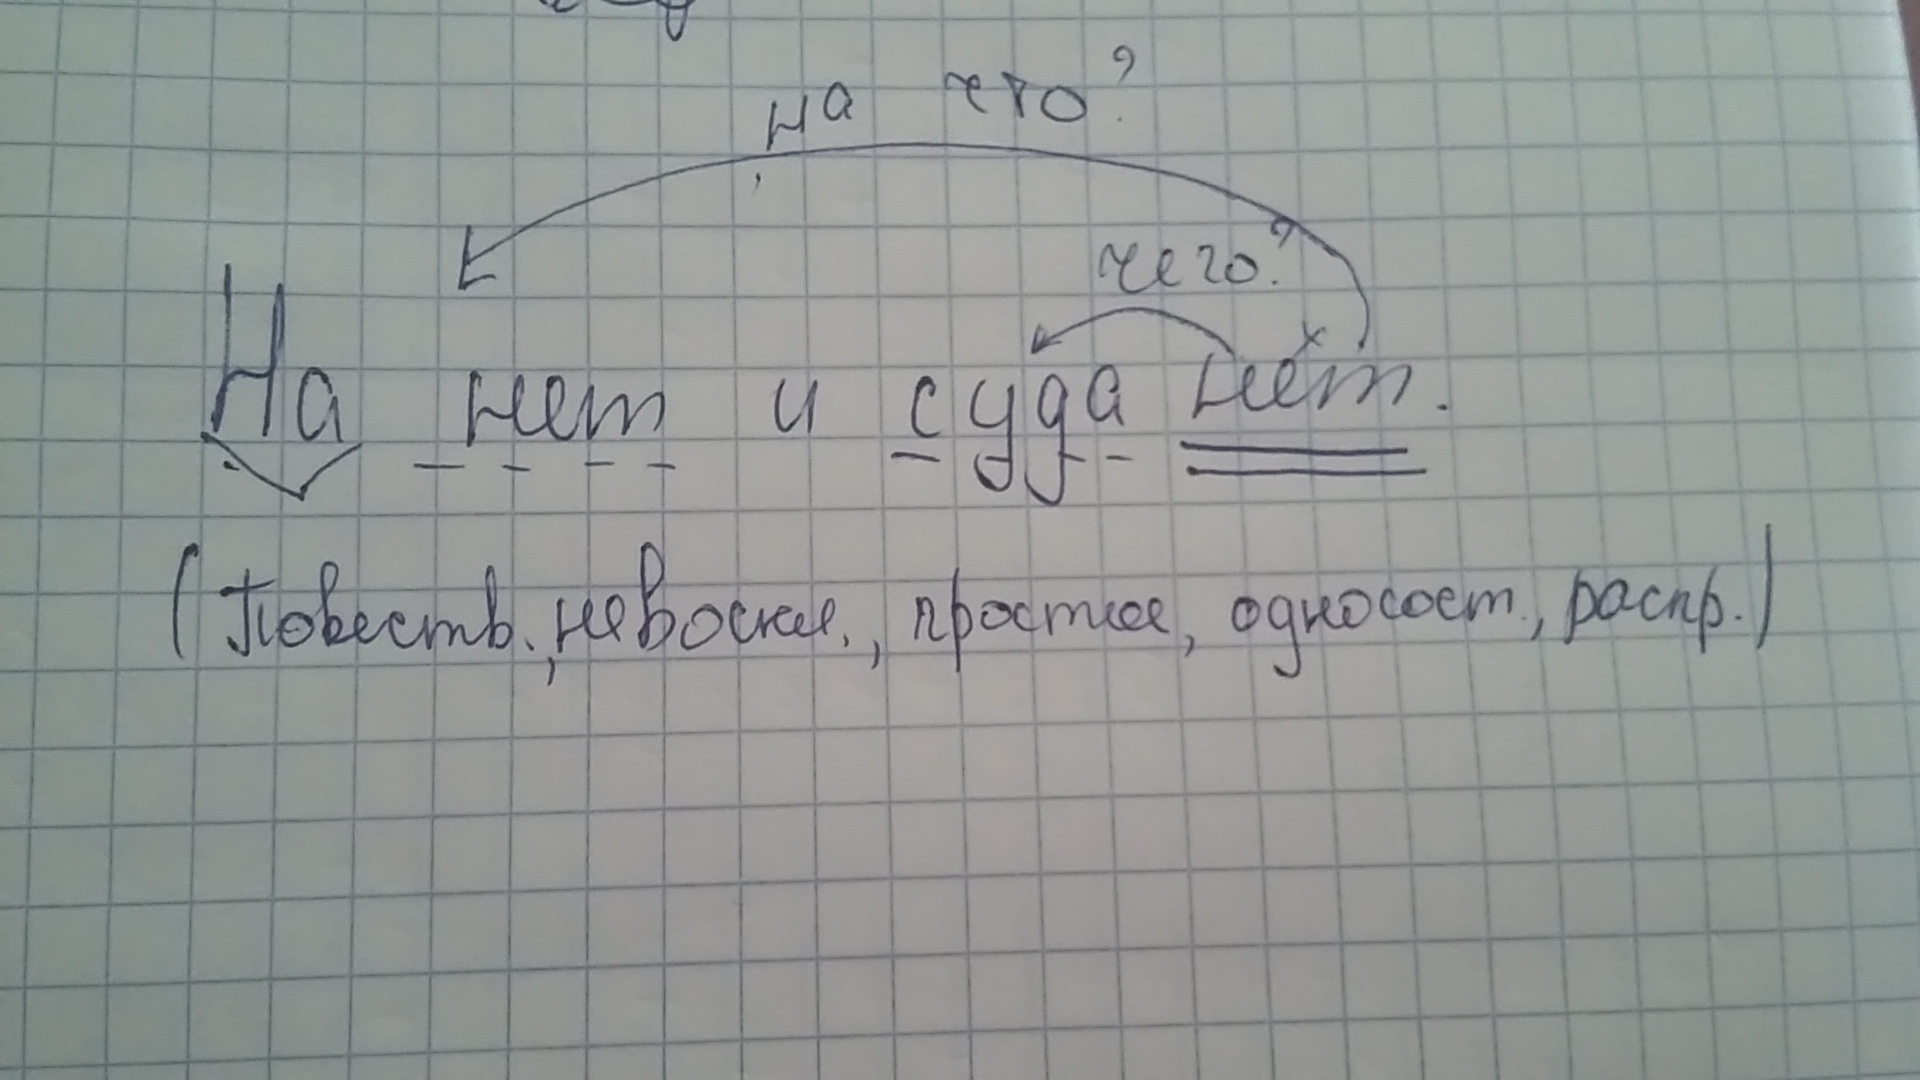 на что?
чего?
На нет и суда нет.
(Повеств., невоскл., простое, односост., распр.)